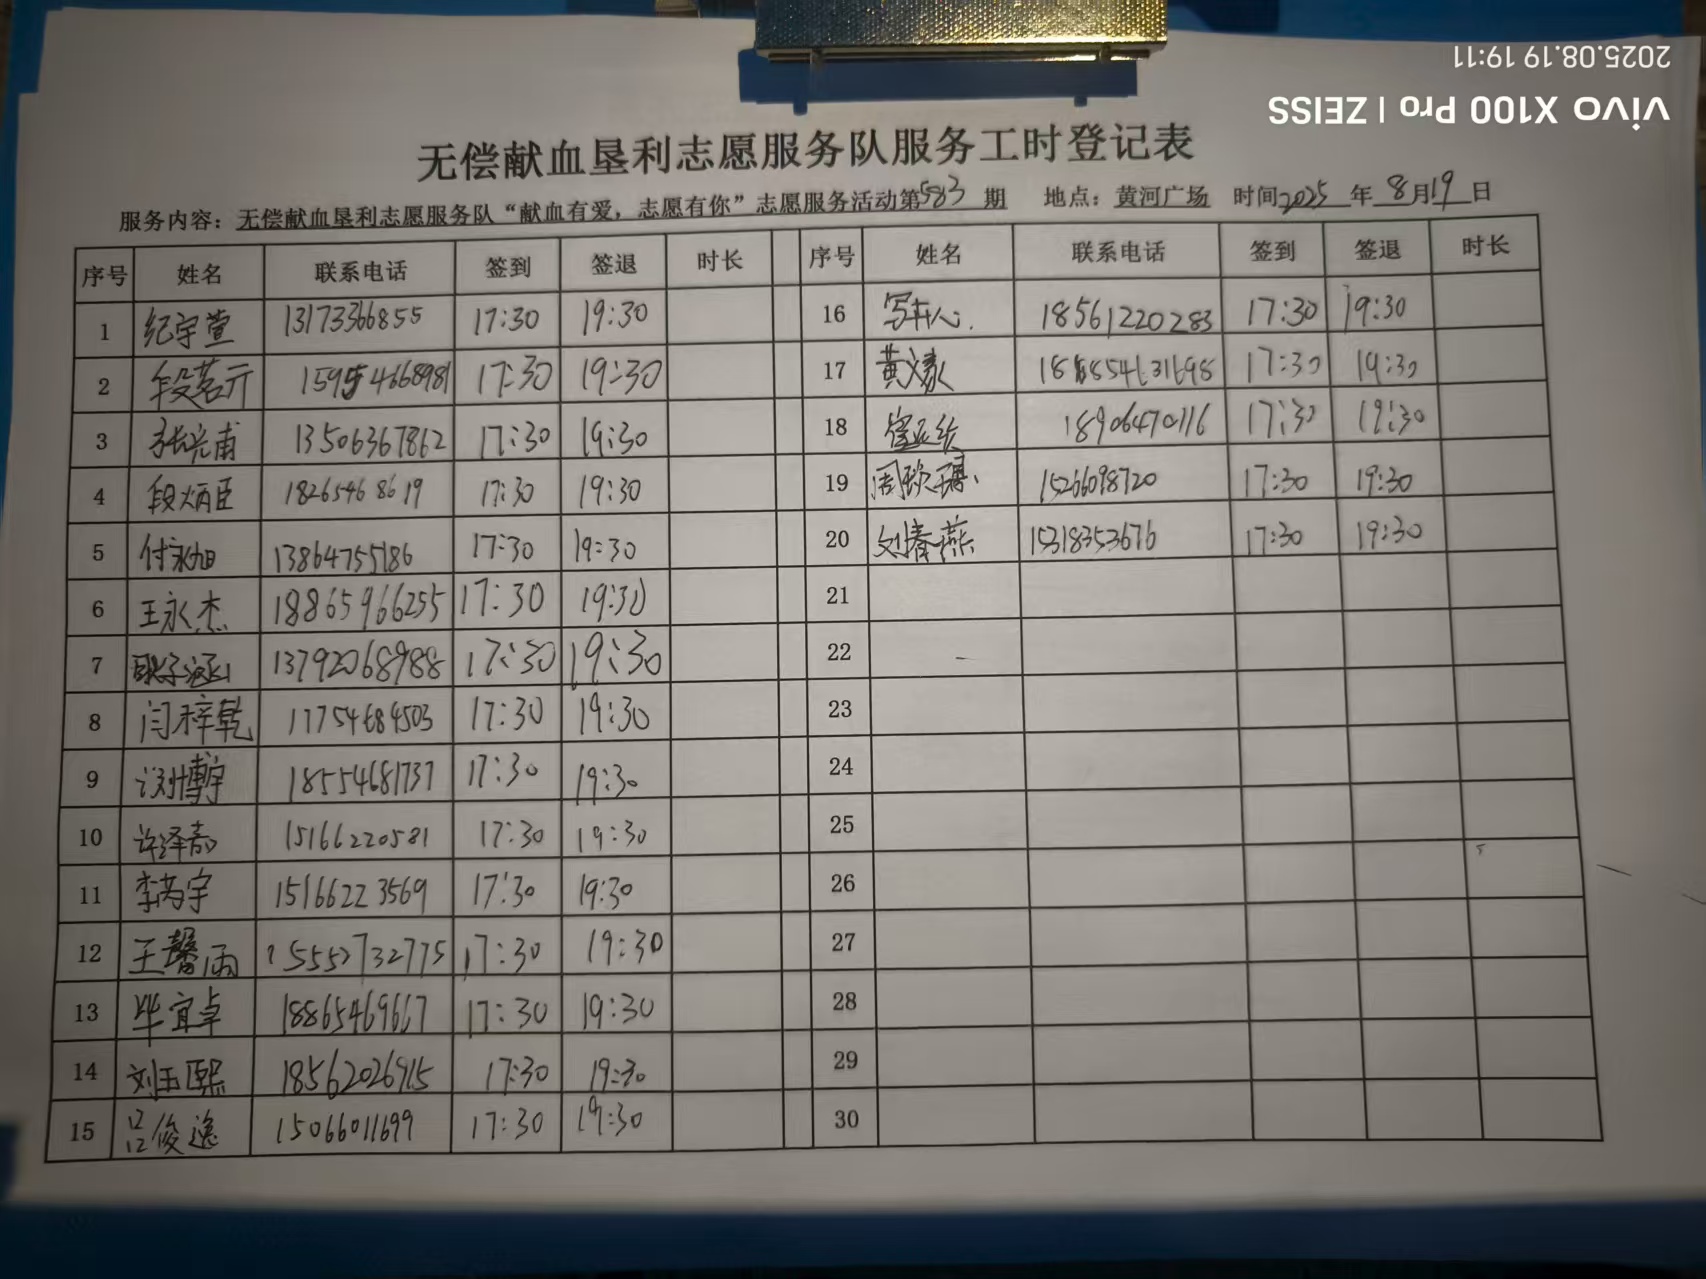 2025.08.19 19:11
vivo X100 Pro | ZEISS
无偿献血垦利志愿服务队服务工时登记表
服务内容：无偿献血垦利志愿服务队“献血有爱，志愿有你”志愿服务活动第583期 地点：黄河广场 时间2025年8月19日
序号 姓名 联系电话 签到 签退 时长 序号 姓名 联系电话 签到 签退 时长
1 纪宇萱 13173366855 17:30 19:30 16 18561220283 17:30 19:30
2 段茗元 15954668981 17:30 19:30 17 黄 17:30 19:30
3 张光甫 13506367862 17:30 19:30 18 18906470116 17:30 19:30
4 段炳臣 18265468619 17:30 19:30 19 周 15266098720 17:30 19:30
5 付永旭 13864755186 17:30 19:30 20 刘春燕 15318353676 17:30 19:30
6 王永杰 18865966255 17:30 19:30 21
7 耿子涵 13792068988 17:30 19:30 22
8 闫梓乾 17754684503 17:30 19:30 23
9 刘博宇 18554681737 17:30 19:30 24
10 许泽 15166220581 17:30 19:30 25
11 李芮宇 15166223569 17:30 19:30 26
12 王馨雨 15552732775 17:30 19:30 27
13 毕宜卓 18865469617 17:30 19:30 28
14 刘玉熙 18562026915 17:30 19:30 29
15 吕俊逸 15066011699 17:30 19:30 30